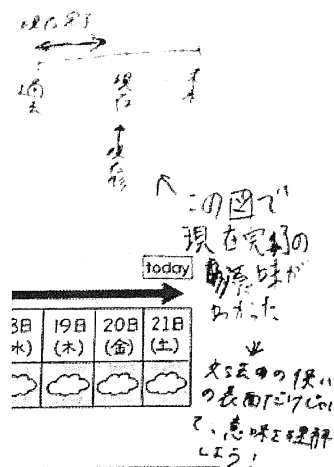 現在完了
過去
現在
未来
現在形
この図で
現在完了の
意味が
わかった
today
8日
(水)
19日
(木)
20日
(金)
21日
(土)
文法の使い
の表面だけじゃなく
て、意味を理解
しよう!